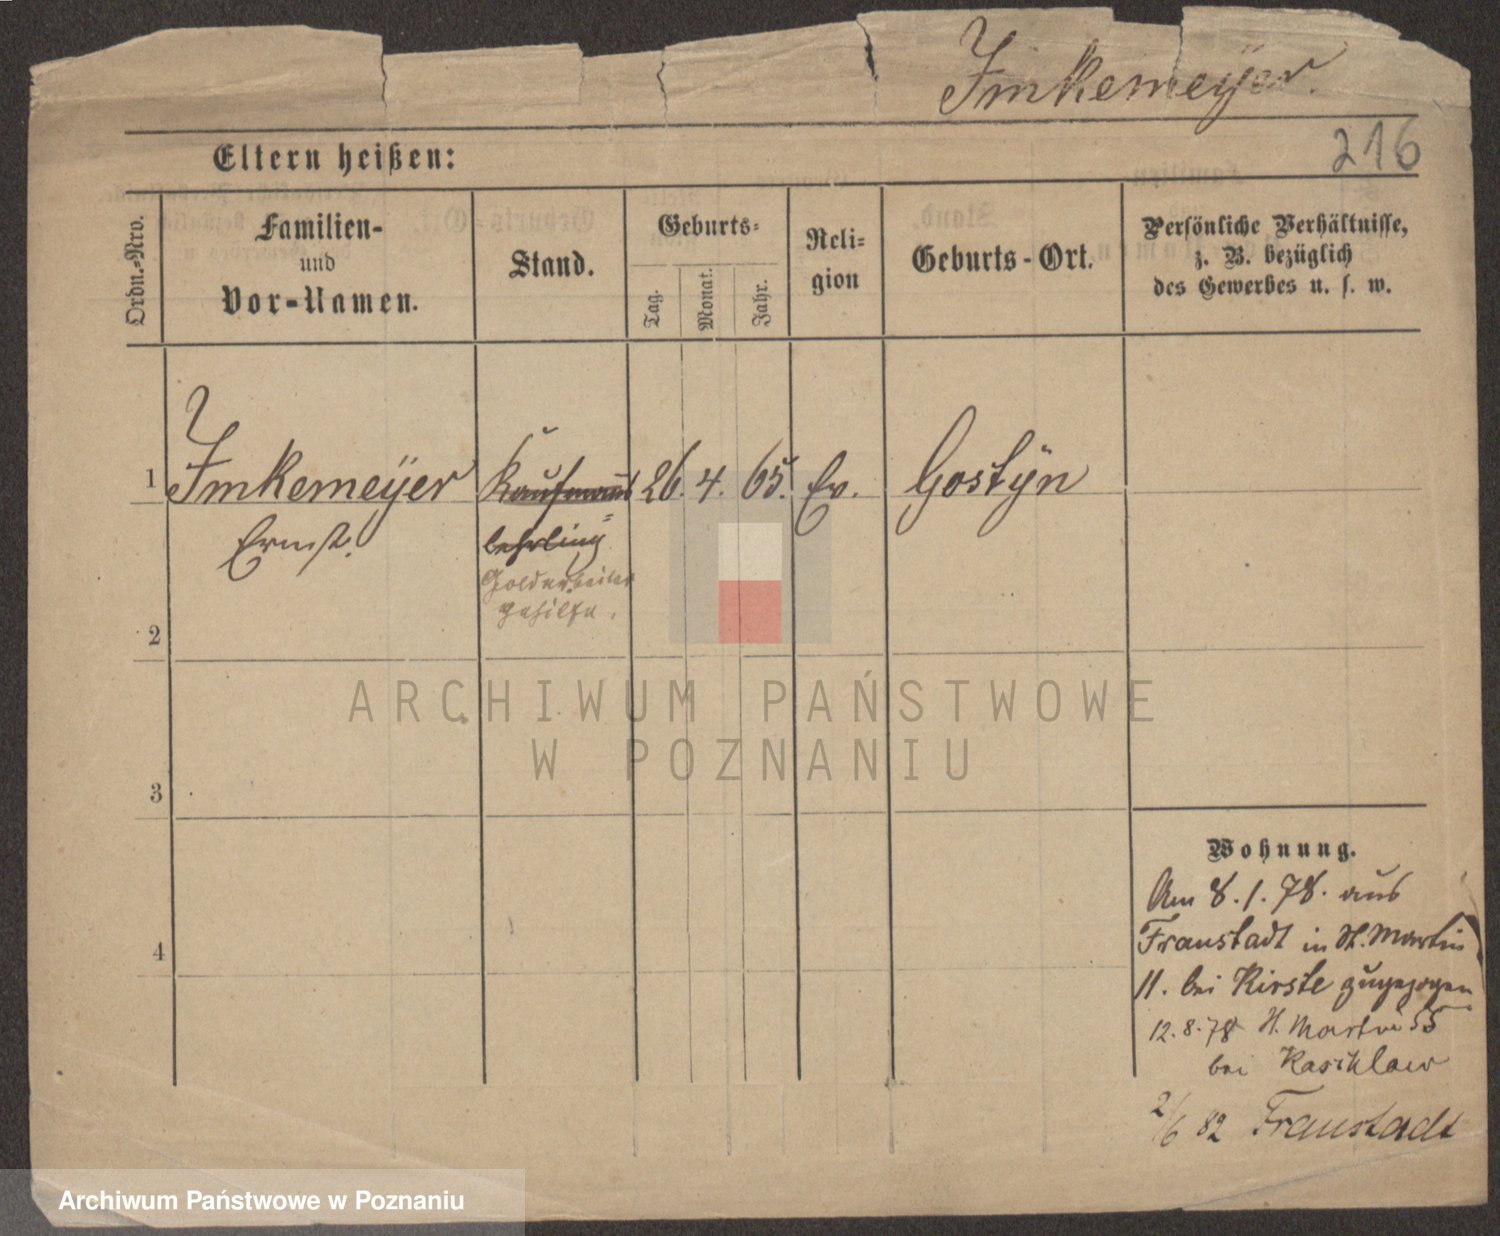 Imkemeÿer.
216
Eltern heißen:
Ordn.-Nro.
Familien-
und
Vor-Namen.
Stand.
Geburts-
Tag.
Monat.
Jahr.
Reli-
gion
Geburts-Ort.
Persönliche Verhältnisse,
z. B. bezüglich
des Gewerbes u. s. w.
1 Imkemeÿer Kaufmanns 26. 4. 65. Ev. Gostÿn
Ernst. lehrling
Goldarbeiter
gehilfe.
2
3
4
Wohnung.
Am 8.1.78. aus
Fraustadt in St. Martin
11. bei Kirste zugezogen
12.8.78 St. Martin 55
bei
2/6 82 Fraustadt
ARCHIWUM PAŃSTWOWE
W POZNANIU
Archiwum Państwowe w Poznaniu